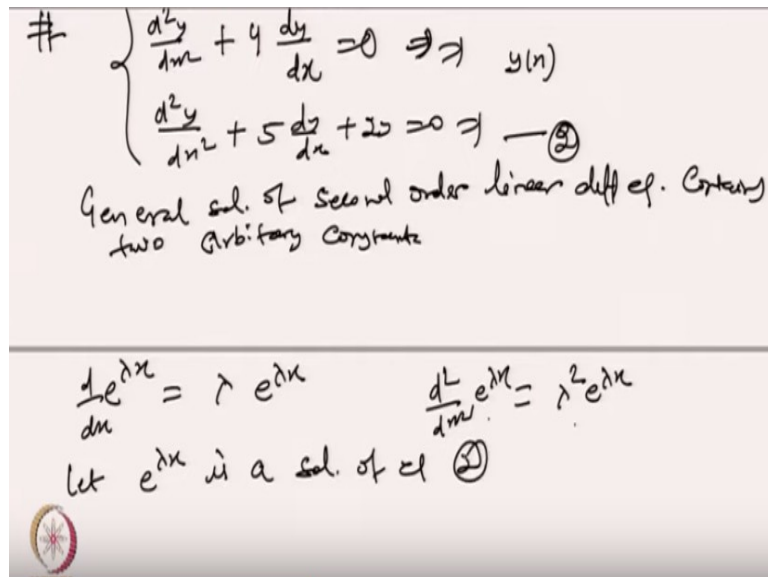 # d²y/dx² + 4 dy/dx = 0 ⇒⇒ y(x)
d²y/dx² + 5 dy/dx + 2y = 0 ⇒ — ②
General sol. of Second order linear diff eq. Contains
two Arbitary Constants
d/dx e^λx = λ e^λx d²/dx² e^λx = λ² e^λx
let e^λx is a sol. of eq ②